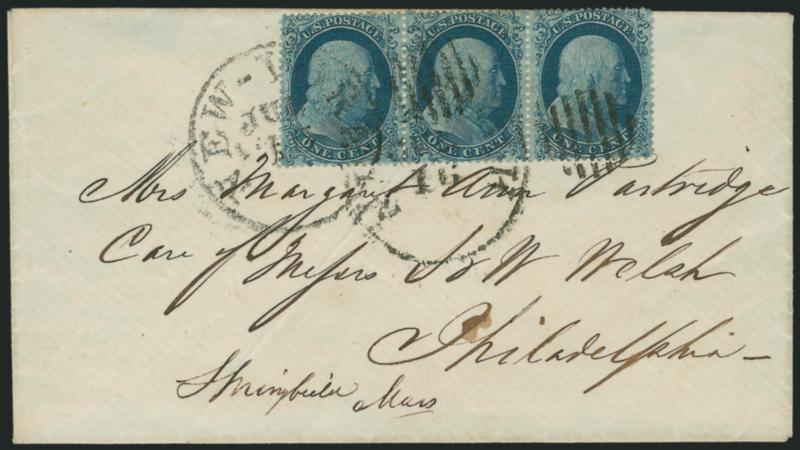 U.S. POSTAGE U.S. POSTAGE U.S. POSTAGE
ONE CENT ONE CENT ONE CENT
NEW-YORK
JUL
16
Mrs Margaret Ann Partridge
Care of Messrs S & W Welsh
Philadelphia
Springfield Mass